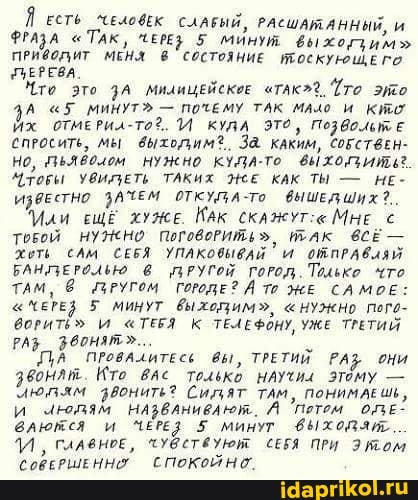 Я есть человек слабый, расшатанный, и
фраза «Так, через 5 минут выходим»
приводит меня в состояние тоскующего
дерева.
Что это за милицейское «так»?.. Что это
за «5 минут» — почему так мало и кто
их отмерил-то?.. И куда это, позвольте
спросить, мы выходим?.. За каким, собствен-
но, дьяволом нужно куда-то выходить?..
Чтобы увидеть таких же как ты — не-
известно зачем откуда-то вышедших?..
Или ещё хуже. Как скажут: «Мне с
тобой нужно поговорить», так всё —
хоть сам себя упаковывай и отправляй
бандеролью в другой город. Только что
там, в другом городе? А то же самое:
«через 5 минут выходим», «нужно пого-
ворить» и «тебя к телефону, уже третий
раз звонят»...
Да провалитесь вы, третий раз они
звонят. Кто вас только научил этому —
людям звонить? Сидят там, понимаешь,
и людям названивают. А потом оде-
ваются и через 5 минут выходят...
И, главное, чувствуют себя при этом
совершенно спокойно.
idaprikol.ru